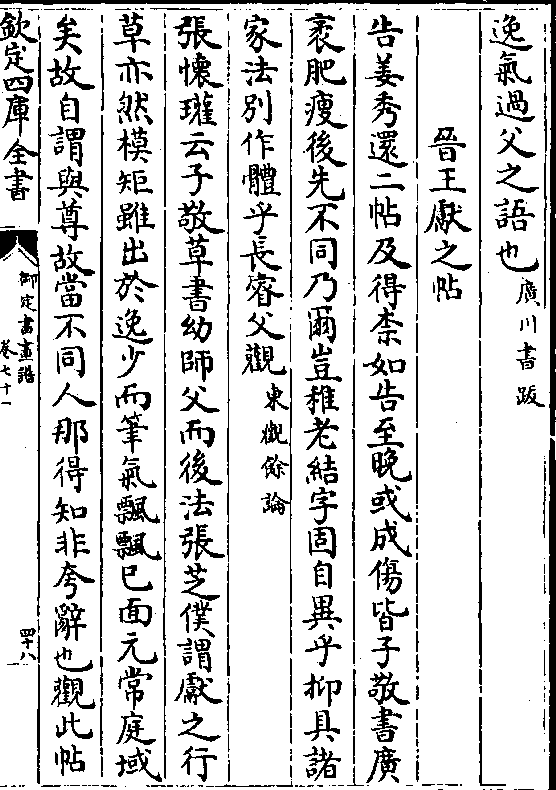 逸氣過父之語也廣川書䟦
晉王獻之帖
告姜秀還二帖及得柰如告至晚或成傷皆子敬書廣
袤肥瘦後先不同乃爾豈稚老結字固自異乎抑具諸
家法别作體乎長睿父觀東觀餘論
張懷瓘云子敬草書幼師父而後法張芝僕謂獻之行
草亦然模矩雖出於逸少而筆氣飄飄已面元常庭域
矣故自謂與尊故當不同人那得知非夸辭也觀此帖
欽定四庫全書
御定書畫譜
卷七十一
四十八